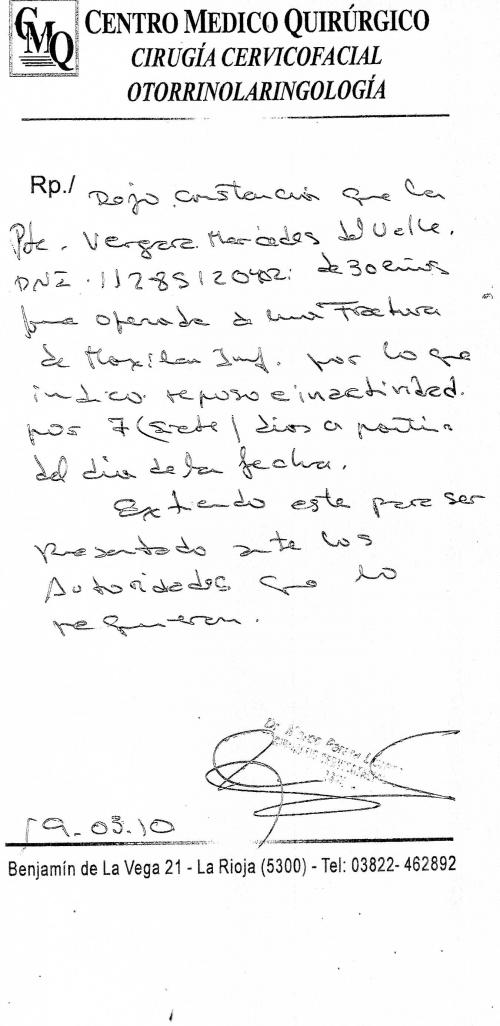 CMQ
CENTRO MEDICO QUIRÚRGICO
CIRUGÍA CERVICOFACIAL
OTORRINOLARINGOLOGÍA
Rp./ Dejo constancia que la
Pte. Vergara Mercedes del Valle.
DNI de 30 años
fue operada de una Fractura
de Maxilar Inf. por lo que
indico reposo e inactividad.
por 7 (siete) dias a partir
del dia de la fecha.
Extiendo este para ser
presentado ante las
Autoridades que lo
requieran.
19-03-10
Benjamín de La Vega 21 - La Rioja (5300) - Tel: 03822- 462892